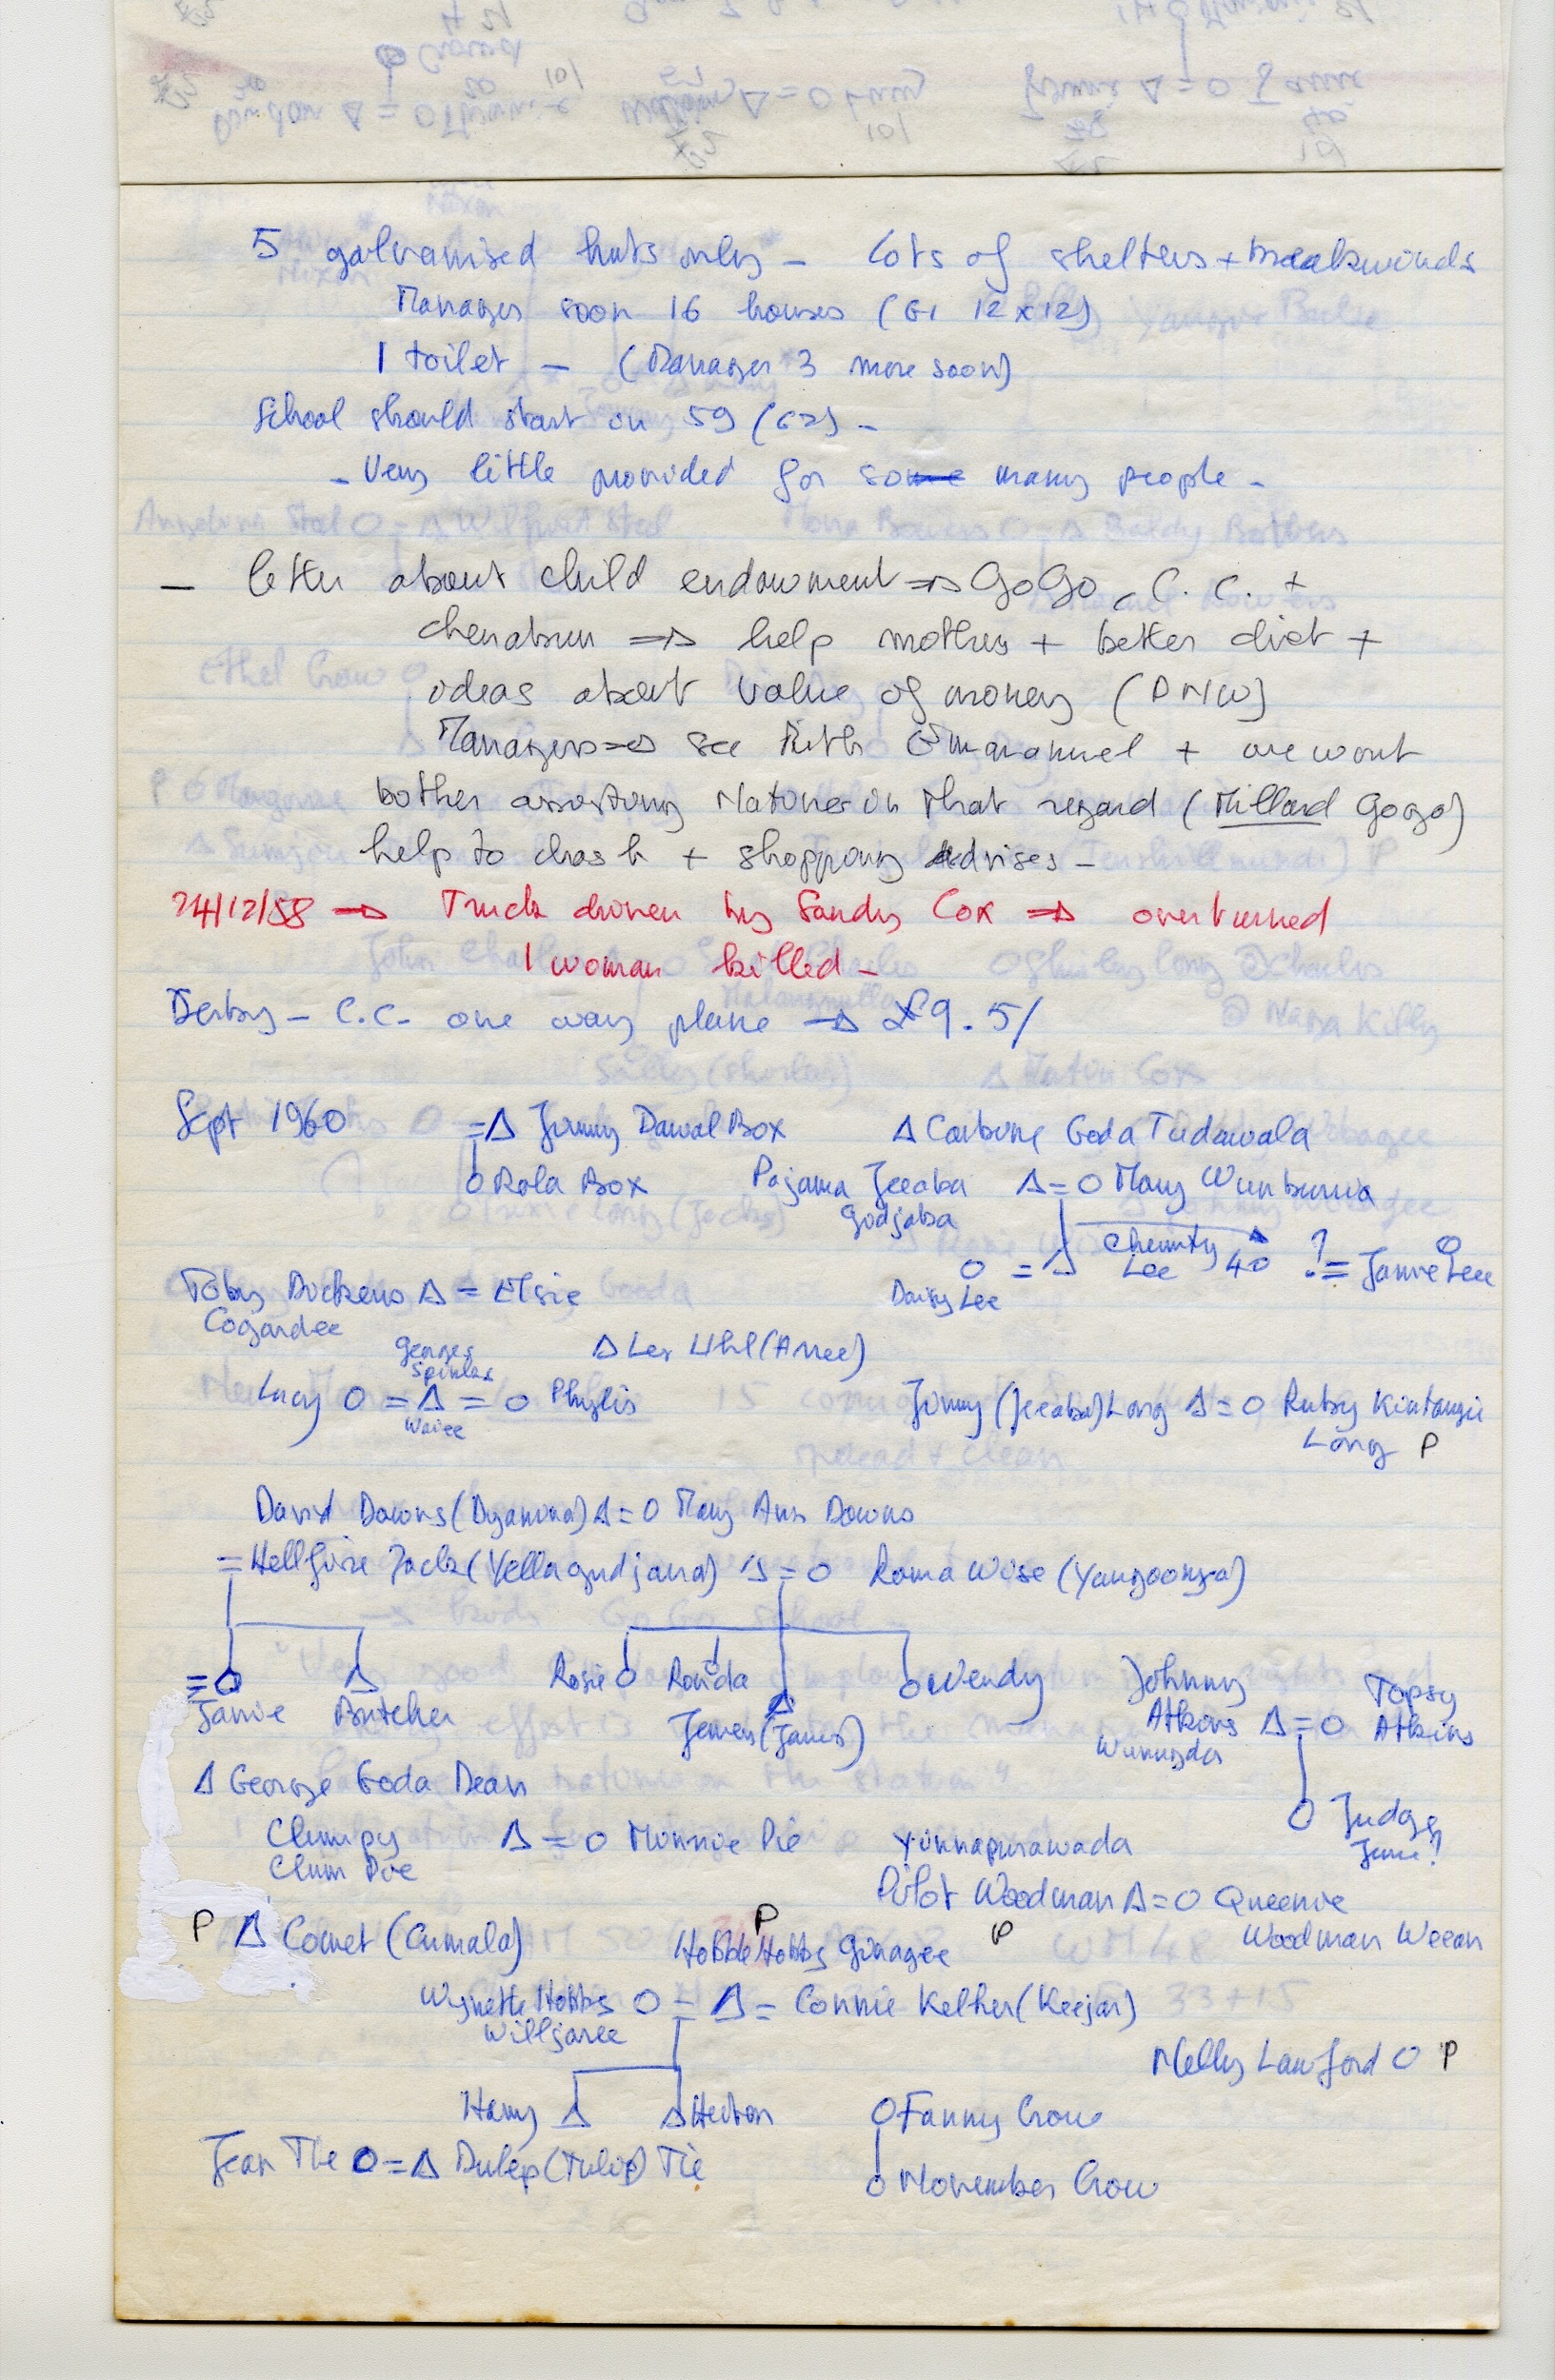 5 galvanised huts only - Lots of shelters + breakwinds
Manager soon 16 houses (GI 12x12)
1 toilet - (Manager 3 more soon)
School should start on 59 (62) -
- Very little provided for so many people -
- letter about child endowment => GoGo, C.C. +
Cherabun => help mothers + better diet +
ideas about value of money (DNW)
Managers => see Filth + we wont
bother assisting Natives in that regard (Millard Gogo)
help to + shopping Advises -
24/12/58 -> Truck driven by Sandy Cox => overturned
1 woman killed -
Derby - C.C. one way plane -> £9.5/
Sept 1960 =Δ Jimmy Dawal Box Δ Carbine Goda Tudawala
O Rola Box Pajama Jeeaba Δ=O Mary Wunburra
Godjaba
O = Δ Chemity Lee 40 ? = Janie Leee O
Daisy Lee
Toby Dickens Δ = Elsie
Cogardee
Δ Les Uhl (Anee)
George Spinks
Lucy O = Δ = O Phylis Jimmy (Jeeaba) Long Δ=O Ruby Kintangie
Waiee Long P
David Downs (Dyamina) Δ=O Mary Ann Downs
= Hellfire Jack (Yellagudjana) Δ=O Roma Wise (Yangoonga)
=O Δ Rosie O Ronda O Wendy Johnny Topsy
Janie Butcher Jemes (James) Atkins Δ=O Atkins
Wunugda
Δ George Goda Dean O Judge
June?
Clumpy Δ=O Minnie Pie Yinnapurawada
Clum Pie Pilot Woodman Δ=O Queenie
P Δ Comet (Cumala) P Hobble Hobbs Ginagee P Woodman Weean
Wynette Hobbs O = Δ = Connie Kelher (Keejar)
Willjaree
Nelly Lawford O P
Harry Δ Δ Hector O Fanny Crow
Jean Tie O=Δ Dulep (Tulip) Tie O November Crow